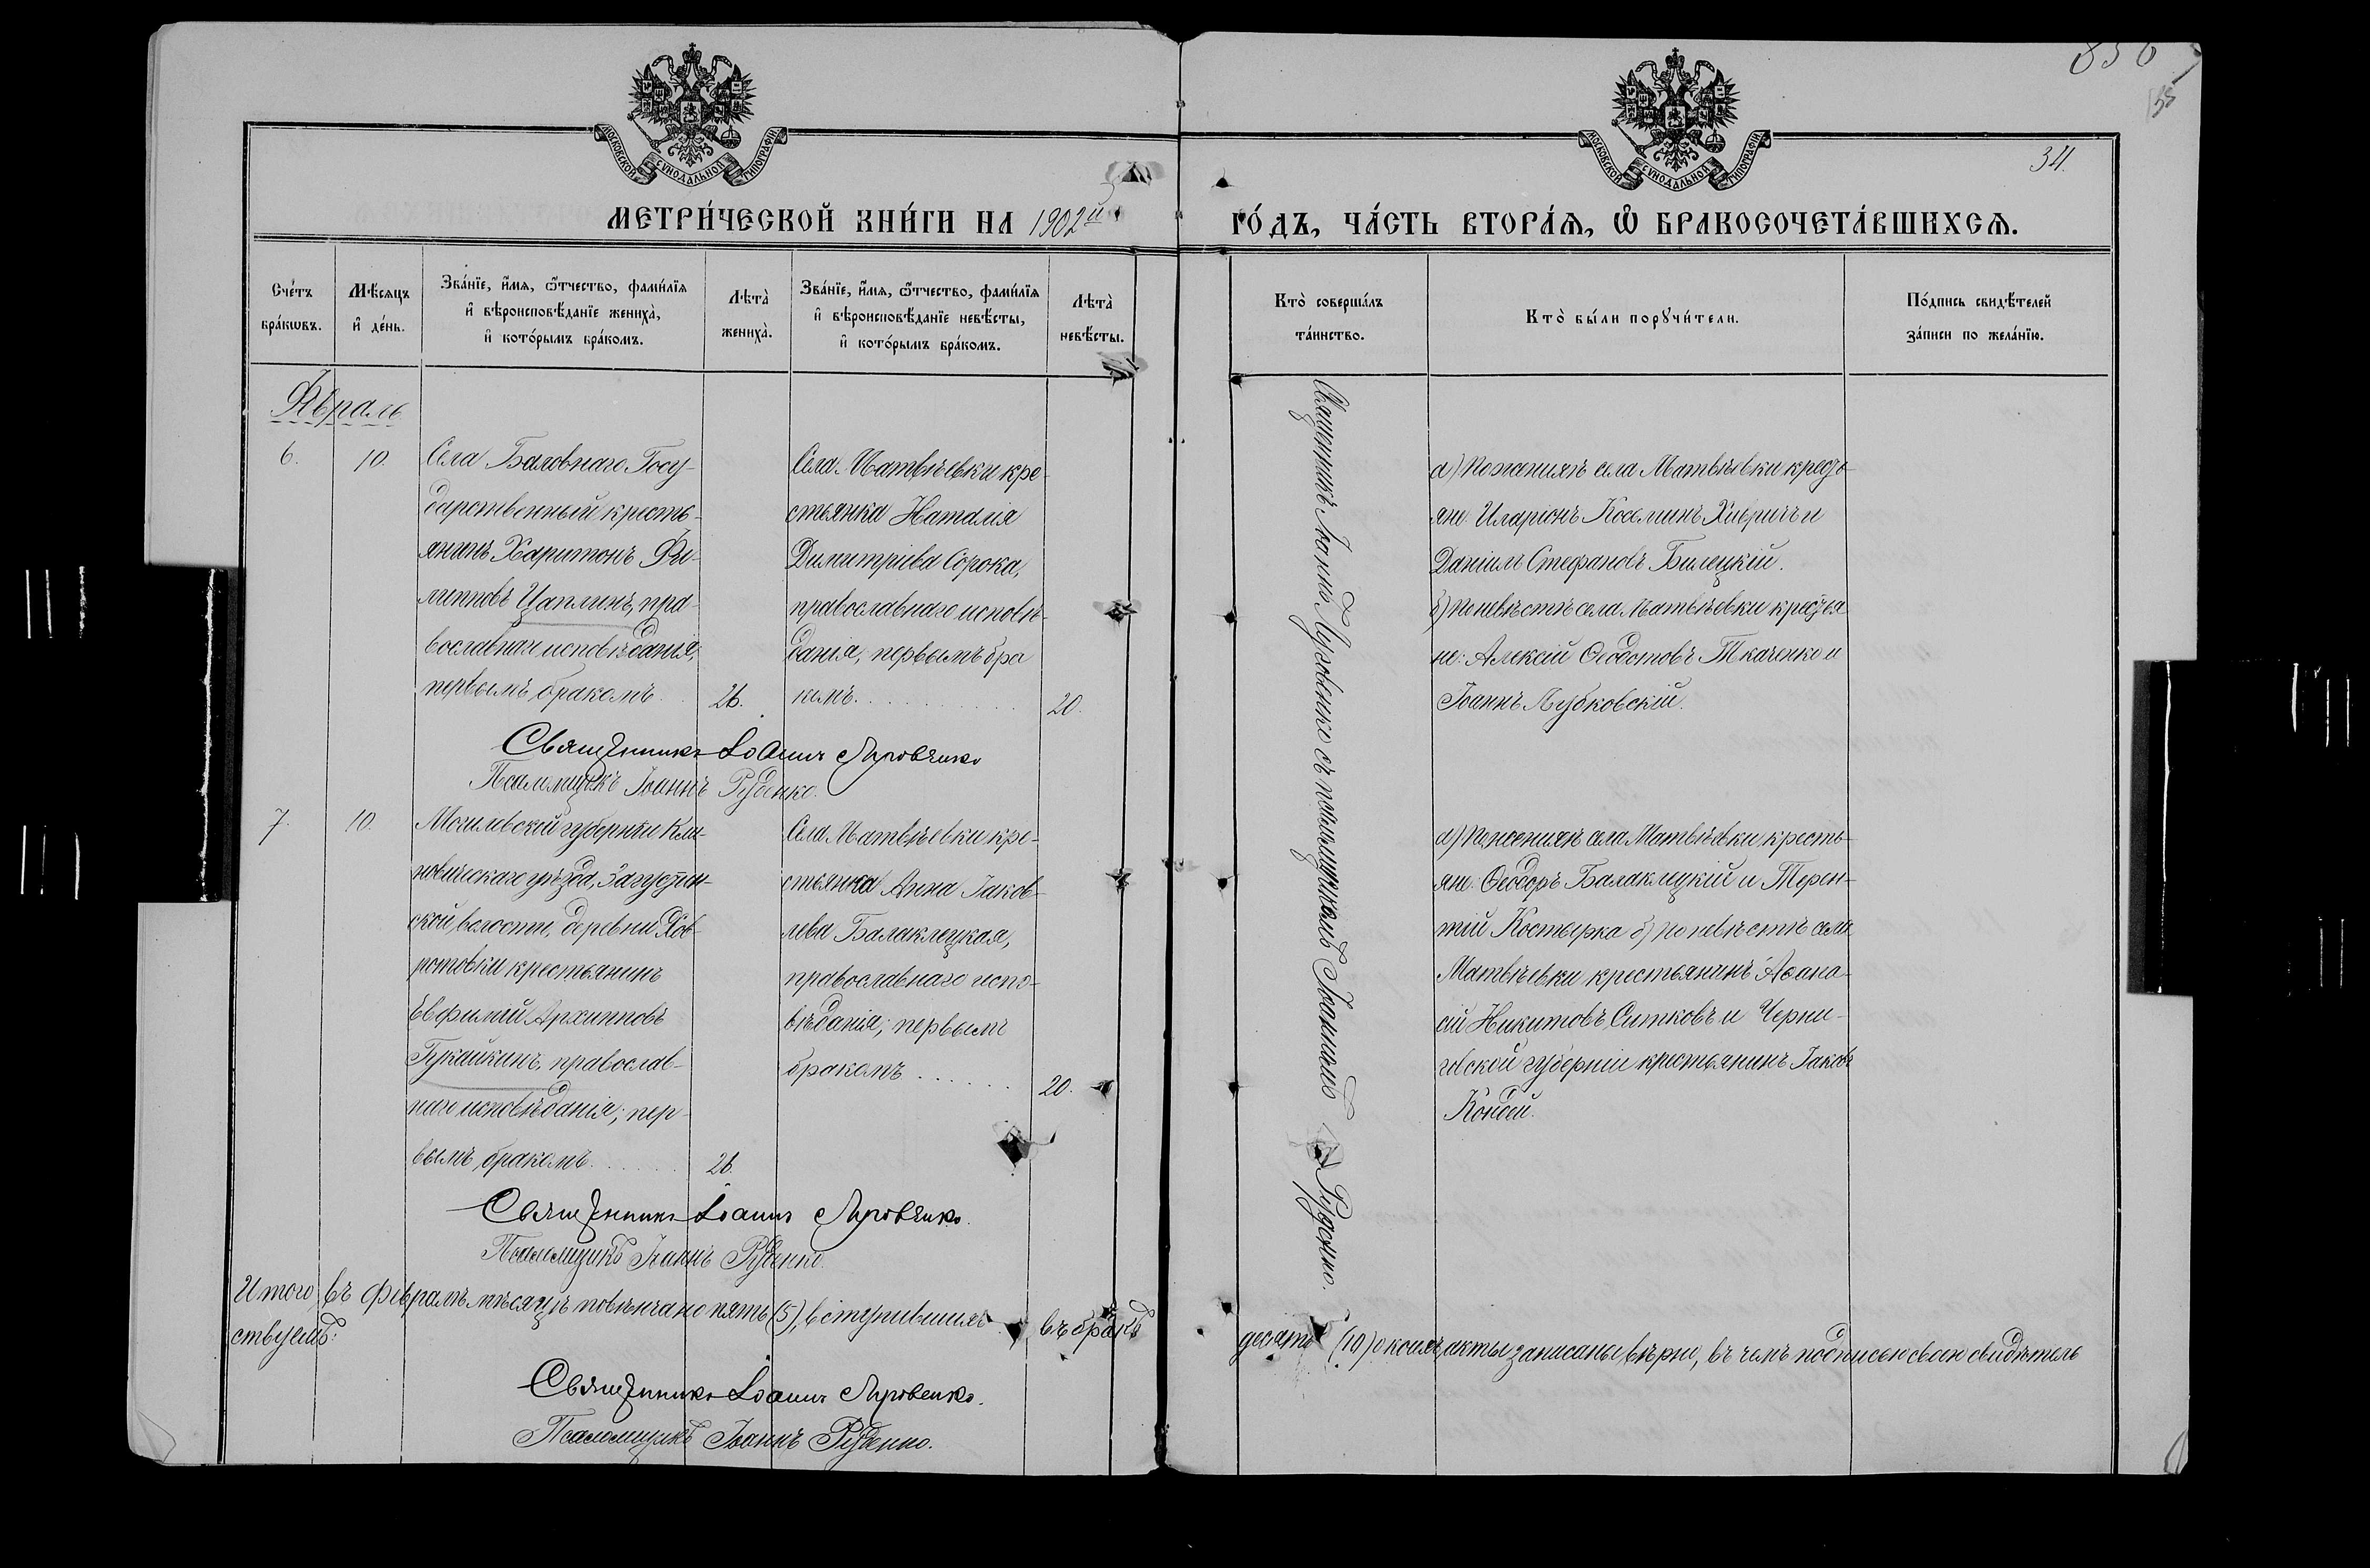 856
155
34.
МОСКОВСКОЙ СУНОДАЛЬНОЙ ТИПОГРАФІИ
МОСКОВСКОЙ СУНОДАЛЬНОЙ ТИПОГРАФІИ
МЕТРИ́ЧЕСКОЙ КНИ́ГИ НА 1902й
ГО́ДЪ, ЧА́СТЬ ВТОРА́Ѧ, Ѽ БРАКОСОЧЕТА́ВШИХСѦ.
Сче́тъ
бра́кѡвъ.
Мѣ́сяцъ
и҆ де́нь.
Зва́нїе, и҆́мѧ, ѻ҆́тчество, фамѝлїѧ
и҆ вѣроисповѣ́данїе жениха̀,
и҆ кото́рымъ бра́комъ.
Лѣта̀
жениха̀.
Зва́нїе, и҆́мѧ, ѻ҆́тчество, фамѝлїѧ
и҆ вѣроисповѣ́данїе невѣ́сты,
и҆ кото́рымъ бра́комъ.
Лѣта̀
невѣ́сты.
Кто̀ соверша́лъ
та́инство.
Кто̀ бы́ли порꙋчи́тели.
По́дпись свидѣ́телей
за́писи по жела́нїю.
Февраль
6.
10.
Села Баловнаго Госу-
дарственный кресть-
янинъ Харитонъ Фи-
липповъ Цаплинъ, пра-
вославнаго исповѣданія,
первымъ бракомъ.
26.
Села Матвѣевки кре-
стьянка Наталія
Димитріева Сорока,
православнаго исповѣ-
данія, первымъ бра
комъ.
20.
а) По женихѣ села Матвѣевки кресть-
яне: Иларіонъ Косминъ Хивричъ и
Даніилъ Стефановъ Билецкій.
б) По невѣстѣ села Матвѣевки крестья
не: Алексій Ѳеодотовъ Ткаченко и
Іоаннъ Лубковскій.
Священникъ Іоаннъ
Псаломщикъ Іоаннъ Руденко.
7.
10.
Могилевской губерніи Кли-
мовическаго уѣзда,
ской волости, деревни
крестьянинъ
Евфимій Архипповъ
Гукайкинъ, православ-
наго исповѣданія; пер-
вымъ бракомъ.
26.
Села Матвѣевки кре-
стьянка Анна Іаков-
лева Балаклецкая,
православнаго испо-
вѣданія; первымъ
бракомъ
20.
а) По женихѣ села Матвѣевки кресть-
яне: Ѳеодоръ Балаклицкій и Терен-
тій Костырка б) по невѣстѣ села
Матвѣевки крестьянинъ Аѳана-
сій Никитовъ Ситковъ и Черни-
говской губерніи крестьянинъ Іаковъ
Кондей.
Священникъ Іоаннъ
Псаломщикъ Іоаннъ Руденко.
Священникъ Іоаннъ съ псаломщикомъ Іоанномъ Руденко.
Итого въ февралѣ мѣсяцѣ повѣнчано пять (5), вступившихъ въ бракъ десять (10) о коихъ акты записаны вѣрно, въ чемъ подписью своею свидѣтель
ствуемъ:
Священникъ Іоаннъ
Псаломщикъ Іоаннъ Руденко.